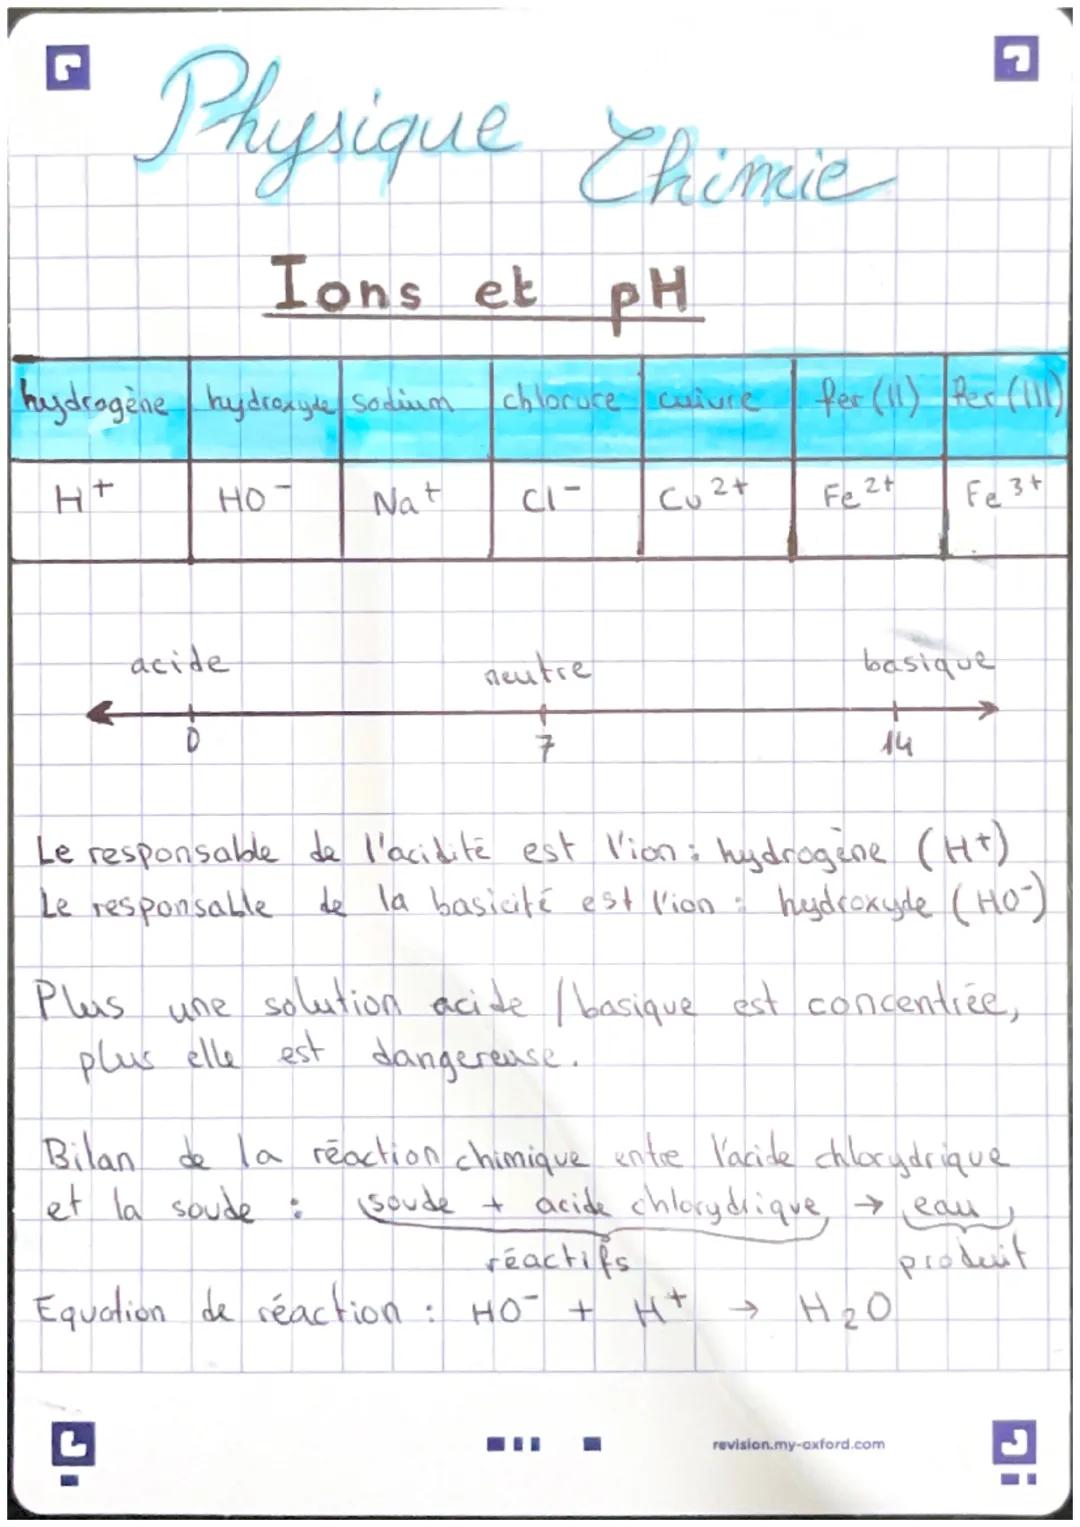 Physique Chimie
Ions et pH
hydrogène hydroxyde sodium chlorure cuivre fer (II) fer (III)
H+ HO⁻ Na+ Cl⁻ Cu²⁺ Fe²⁺ Fe³⁺
acide neutre basique
0 7 14
Le responsable de l'acidité est l'ion : hydrogène (H+)
Le responsable de la basicité est l'ion : hydroxyde (HO⁻)
Plus une solution acide / basique est concentrée,
plus elle est dangereuse.
Bilan de la réaction chimique entre l'acide chlorydrique
et la soude : soude + acide chlorydrique → eau
réactifs produit
Equation de réaction : HO⁻ + H+ → H₂O
revision.my-oxford.com